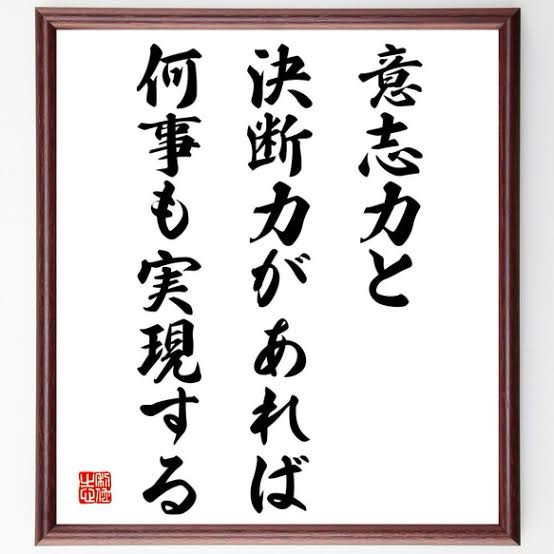 意志力と
決断力があれば
何事も実現する